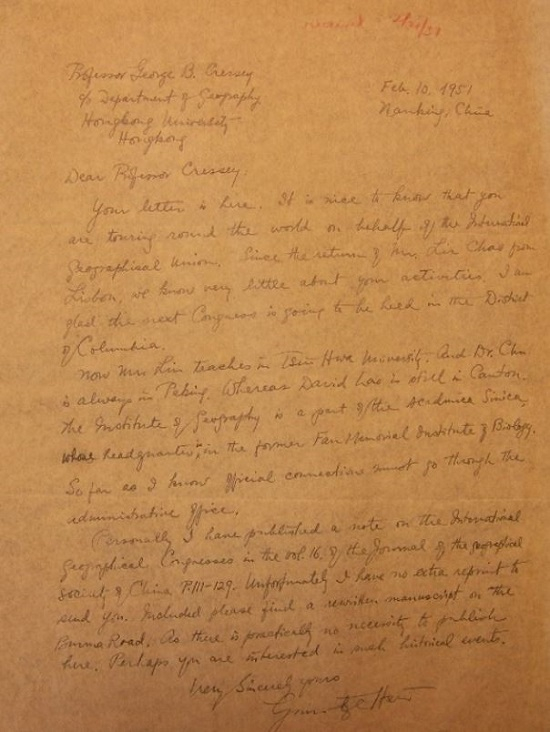 Professor George B. Cressey
c/o Department of Geography
Hongkong University
Hongkong
Feb. 10, 1951
Nanking, China
Dear Professor Cressey,
Your letter is here. It is nice to know that you
are touring round the world on behalf of the International
Geographical Union. Since the return of Mr. Lin Chao from
Lisbon, we know very little about your activities. I am
glad the next Congress is going to be held in the District
of Columbia.
Now Mr. Lin teaches in Tsin Hwa University. And Dr. Chu
is always in Peking. Whereas David is still in Canton.
The Institute of Geography is a part of the Academica Sinica,
whose headquarter is in the former Fan Memorial Institute of Biology.
So far as I know official connections must go through the
administrative office.
Personally I have published a note on the International
Geographical Congresses in the vol. 16 of the Journal of the geographical
Society of China P.111-129. Unfortunately I have no extra reprint to
send you. Included please find a rewriten manuscript on the
Burma Road. As there is practically no necessity to publish
here. Perhaps you are interested in such historical events.
Very Sincerely yours